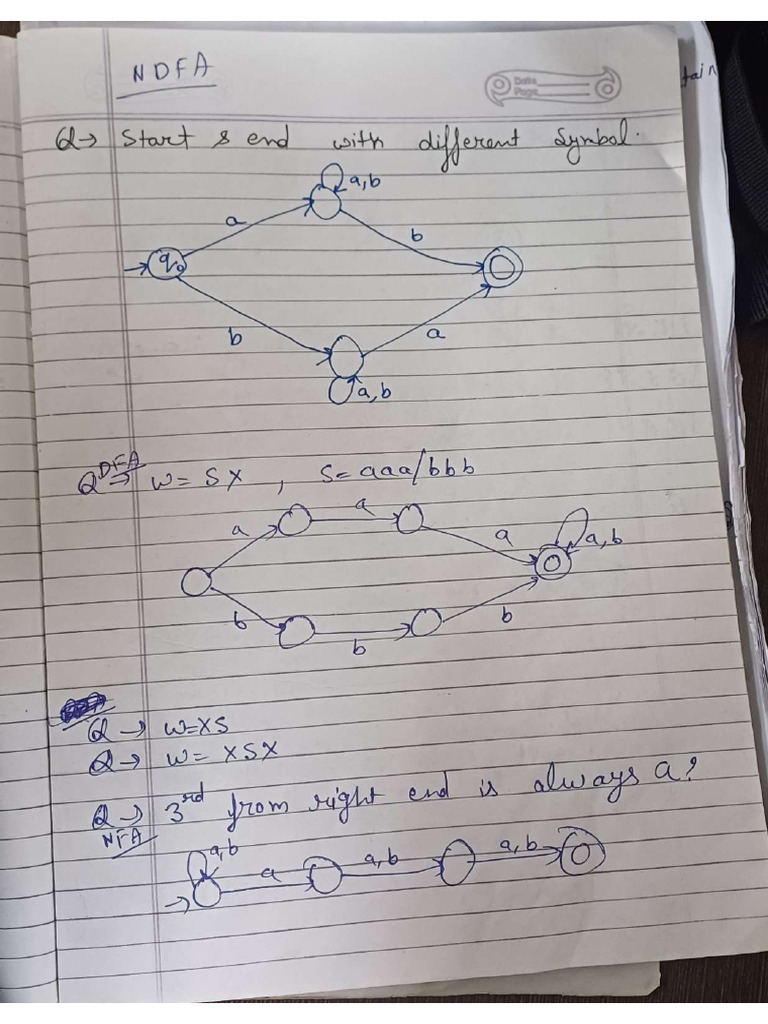 NDFA
Date
Page
tain
Q→ Start & end with different Symbol.
a,b
a
b
q0
b
a
a,b
Q DFA→ W = SX , S = aaa/bbb
a
a
a
a,b
b
b
b
Q → W=XS
Q → W = XSX
Q → 3rd from right end is always a?
NFA
a,b
a
a,b
a,b